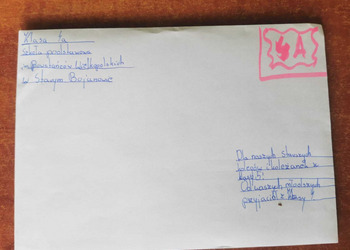 Klasa 4a
Szkoła podstawowa
im. Powstańców Wielkopolskich
w Starym Bojanowie
4A
Dla naszych starszych
kolegów i koleżanek z
klasy 5!
Od waszych młodszych
przyjaciół z klasy